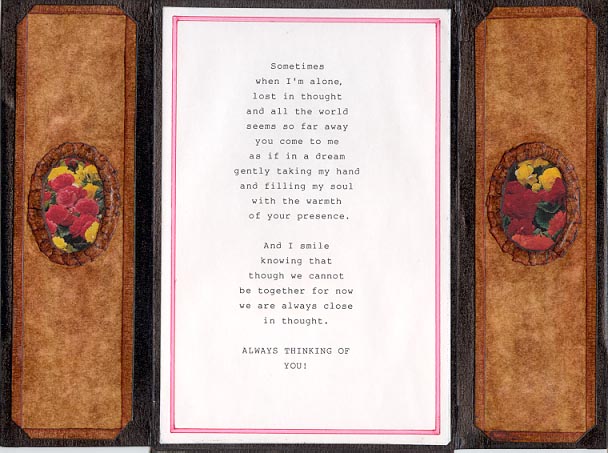 Sometimes
when I'm alone,
lost in thought
and all the world
seems so far away
you come to me
as if in a dream
gently taking my hand
and filling my soul
with the warmth
of your presence.

And I smile
knowing that
though we cannot
be together for now
we are always close
in thought.

ALWAYS THINKING OF
YOU!